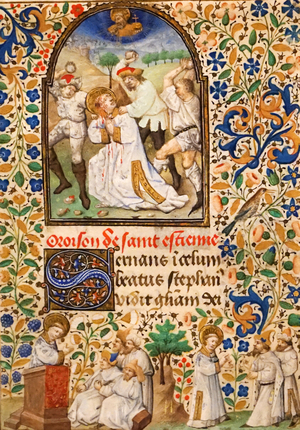 Oroison de saint estienne
Seruans i celum
beatus stephan
vidit gliam dei